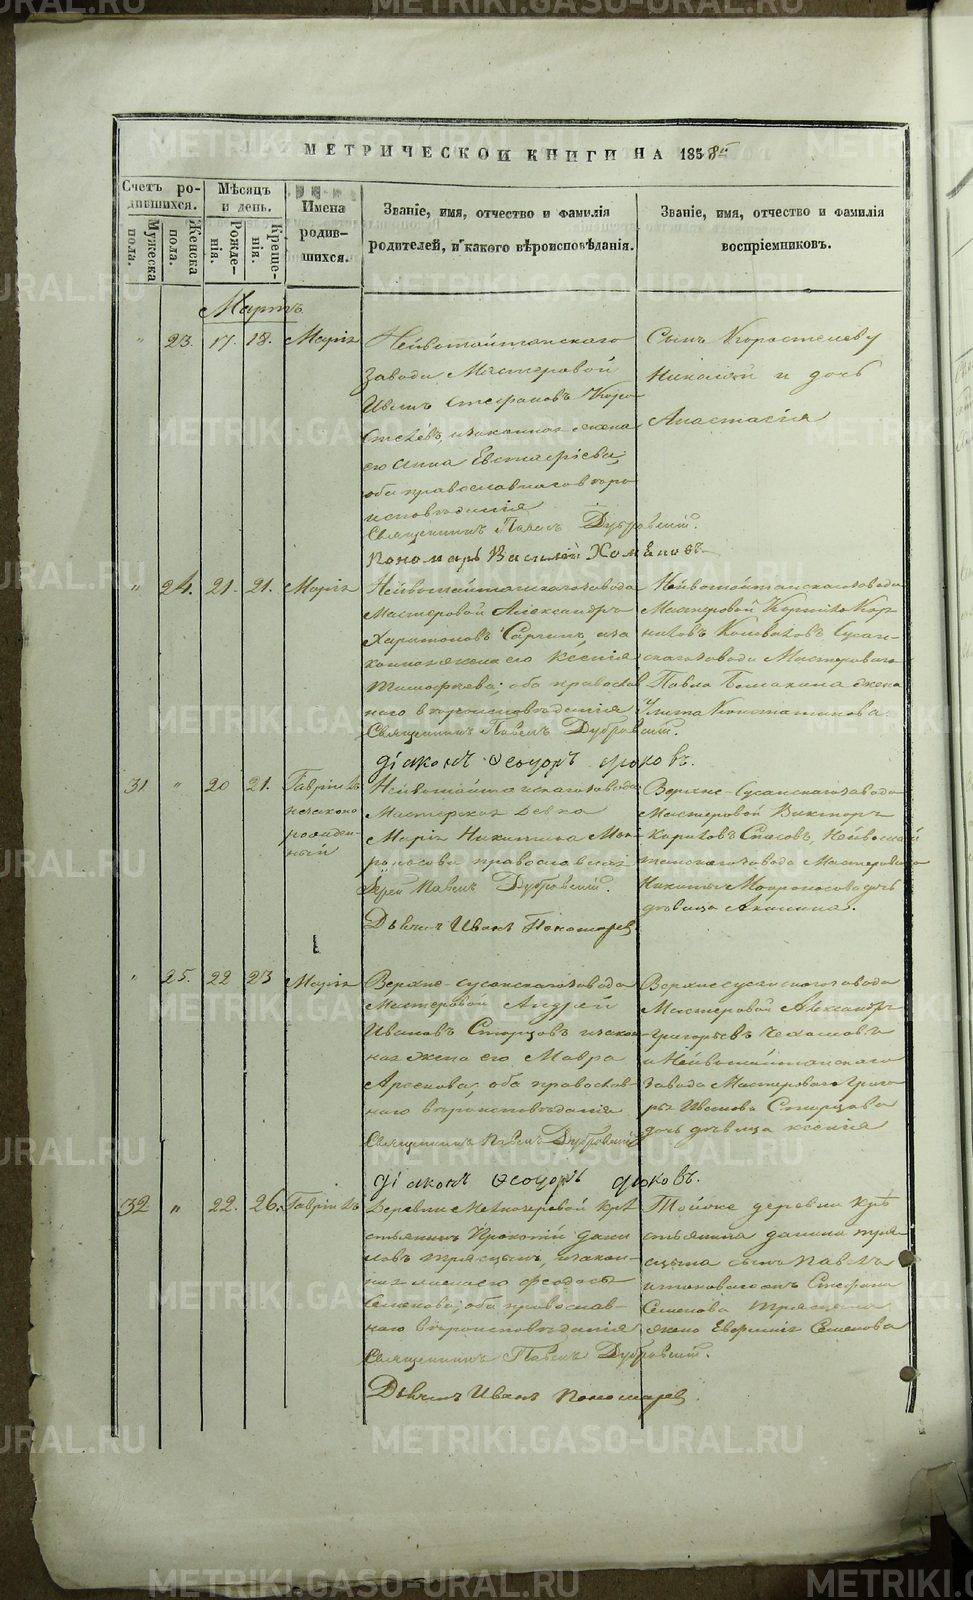 МЕТРИЧЕСКОЙ КНИГИ НА 1858й
Счетъ родившихся.
Мѣсяцъ и день.
Имена родившихся.
Званіе, имя, отчество и фамилія родителей, и какого вѣроисповѣданія.
Званіе, имя, отчество и фамилія воспріемниковъ.
Мужеска пола.
Женска пола.
Рожденія.
Крещенія.
Мартъ
" 23. 17. 18. Марія
Нейвошайтанскаго
завода Мастеровой
Иванъ Стефановъ Коро
стелёвъ, изаконная жена
его Анна Евстафіева,
оба православнаго вѣро
исповѣданія
Священникъ Павелъ Дубровскій.
Пономарь Василій
Сынъ Коростелеву
Николай и дочь
Анастасія
" 24. 21. 21. Марія
Нейвошайтанскагозавода
Мастеровой Александръ
Харитоновъ изза
конная жена его Ксенія
Тимофеева; оба православ
наго вѣроисповѣданія
Священникъ Павелъ Дубровскій.
діаконъ Ѳеодоръ
Нейвошайтанскагозавода
Мастеровой Корнило Кор
ниловъ Сусан-
скагозавода Мастероваго
Павла жена
Улита Константинова
31 " 20 21. Гавріилъ
незаконо
рожден
ный
Нейвошайтанскагозавода
Мастерская девка
Марія Никитина Мок
роносова православная
Іерей Павелъ Дубровскій.
Дьячекъ Иванъ Пономаревъ
Верхне-Сусанскагозавода
Мастеровой Викторъ
Кириловъ Спасовъ, Нейвошай
танскагозавода Мастероваго
Никиты Мокроносова дочь
дѣвица Акилина.
" 25. 22 23 Марія
Верхне-сусанскагозавода
Мастеровой Андрей
Ивановъ Старцовъ изакон
ная жена его Мавра
Арсенова, оба православ-
наго вѣроисповѣданія
Священникъ Павелъ Дубровскій
діаконъ Ѳеодоръ
Верхнесусанскагозавода
Мастеровой Александръ
Григорьевъ
и Нейвошайтанскаго
завода Мастероваго Григо
рья Иванова Старцова
дочь дѣвица Ксенія
32 " 22. 26. Гавріилъ
Деревни Мелкозеровой кре
стьянинъ Прокопій Дани
ловъ Трясцынъ, изакон-
ная жена его Феодосья
Семенова; оба православ-
наго вѣроисповѣданія
Священникъ Павелъ Дубровскій.
Дьячекъ Иванъ Пономаревъ
Тойже деревни кре
стьянина Данила Тря
сцына сынъ Павелъ
Стефана
Семенова Трясцына
жена Евфимія Семенова